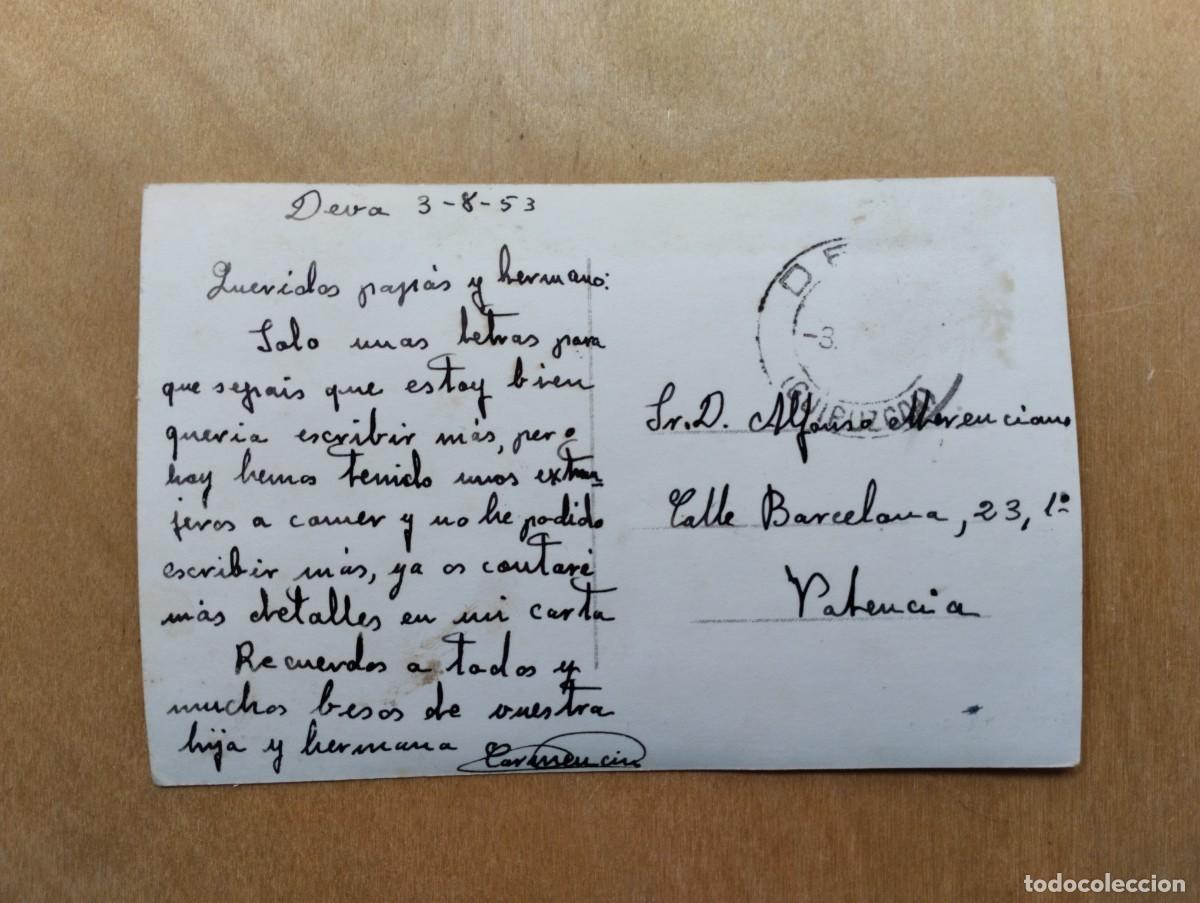 Deva 3-8-53
Queridos papás y hermano:
Solo unas letras para
que sepais que estoy bien
queria escribir más, pero
hoy hemos tenido unos extran-
jeros a comer y no he podido
escribir más, ya os contaré
más detalles en mi carta
Recuerdos a todos y
muchos besos de vuestra
hija y hermana Carmencin
DE
-3.
(GUIPUZCOA)
Sr. D. Alfonso Merenciano
Calle Barcelona, 23, 1º
Valencia
todocoleccion